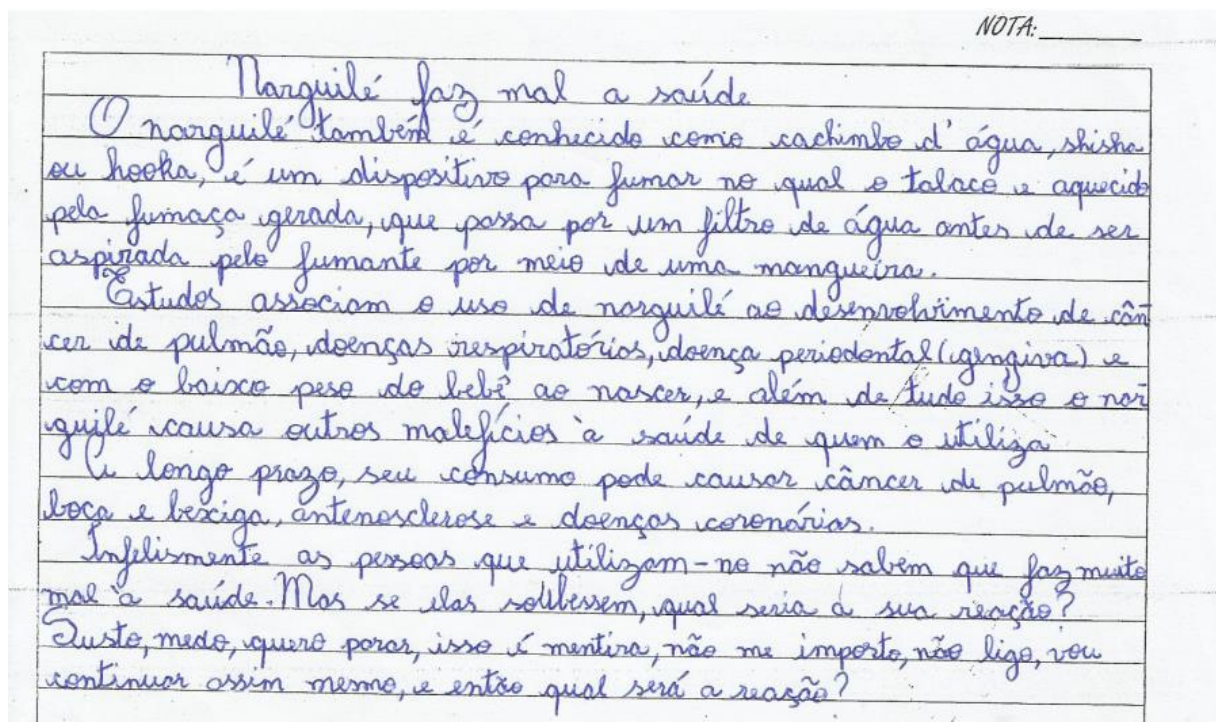 NOTA:
Narguilé faz mal a saúde
O narguilé também é conhecido como cachimbo d'água, shisha
ou hooka, é um dispositivo para fumar no qual o tabaco e aquecido
pela fumaça gerada, que passa por um filtro de água antes de ser
aspirada pelo fumante por meio de uma mangueira.
Estudos associam o uso de narguilé ao desenvolvimento de cân
cer de pulmão, doenças respiratórias, doença periodontal (gengiva) e
com o baixo peso do bebê ao nascer, e além de tudo isso o nar
guilé causa outros malefícios à saúde de quem o utiliza
A longo prazo, seu consumo pode causar câncer de pulmão,
boca e bexiga, antenosclerose e doenças coronárias.
Infelismente as pessoas que utilizam-no não sabem que faz muito
mal à saúde. Mas se elas soubessem, qual seria a sua reação?
Susto, medo, quero parar, isso é mentira, não me importo, não ligo, vou
continuar assim mesmo, e então qual será a reação?